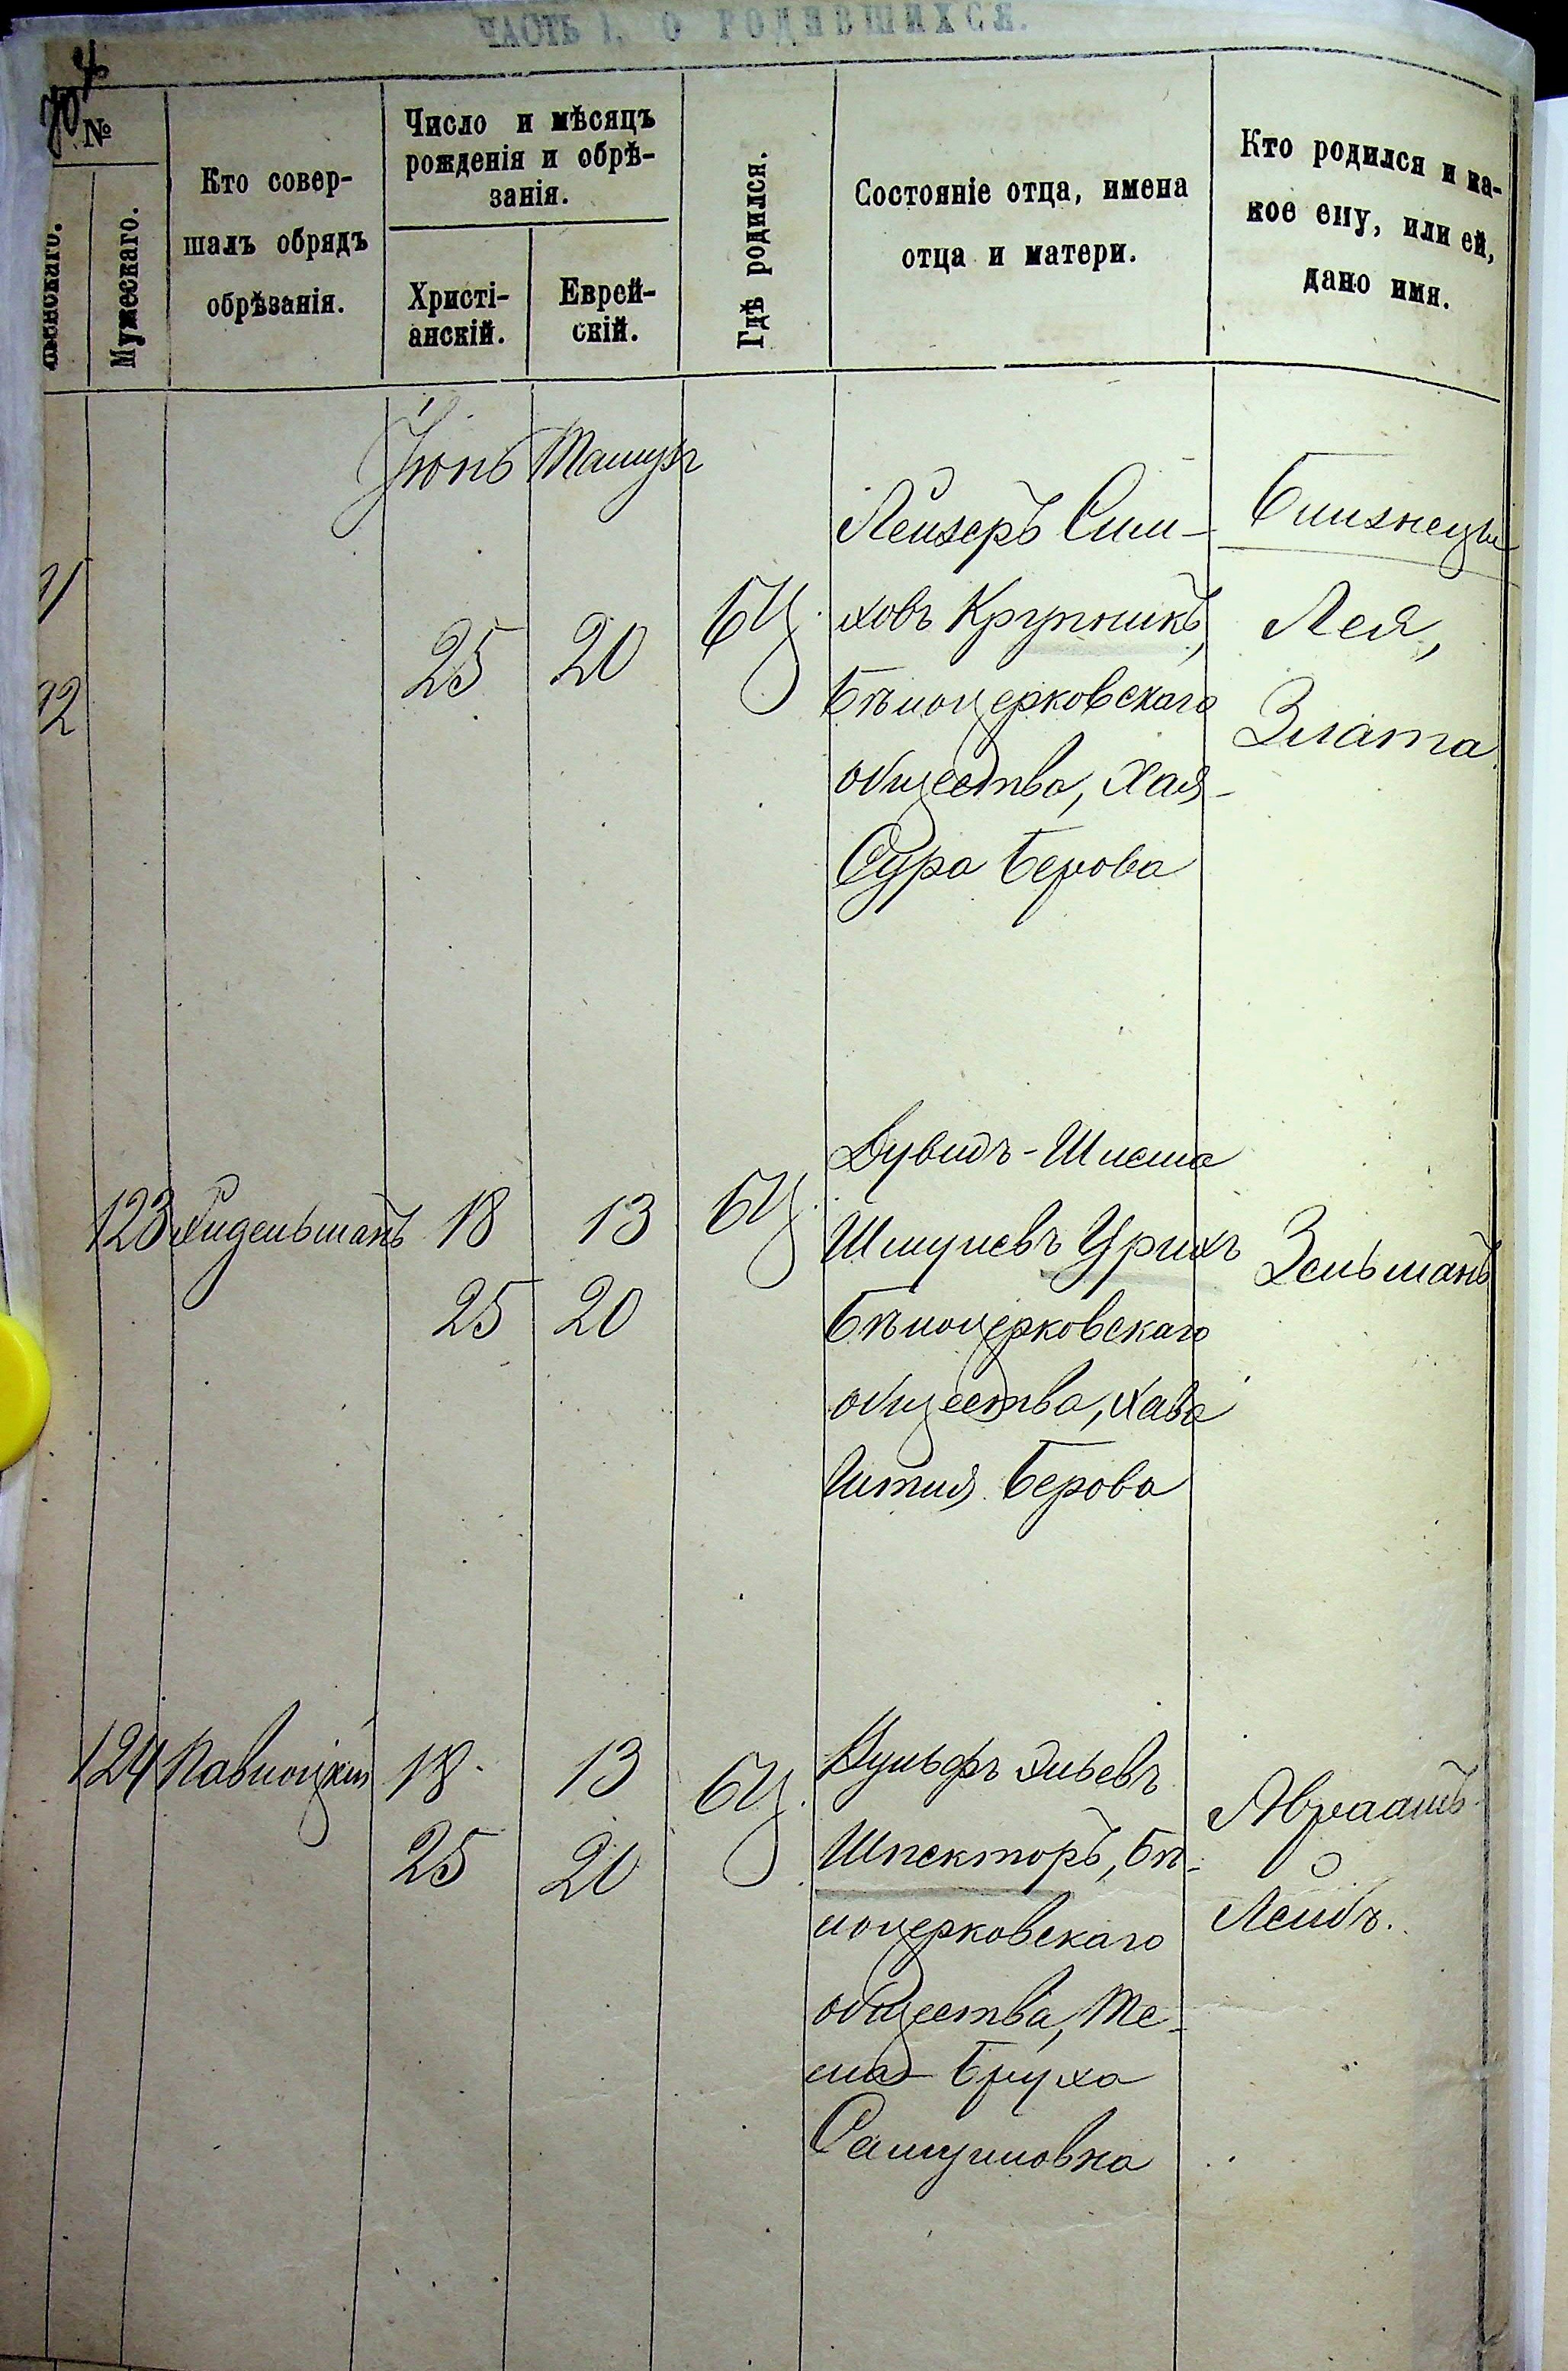 ЧАСТЬ I. О РОДИВШИХСЯ.
№
Мужескаго.
Кто совер-
шалъ обрядъ
обрѣзанія.
Число и мѣсяцъ
рожденія и обрѣ-
занія.
Христі-
анскій.
Еврей-
скій.
Гдѣ родился.
Состояніе отца, имена
отца и матери.
Кто родился и ка-
кое ему, или ей,
дано имя.
Іюнь Тамузъ
25 20 БЦ.
Лейзеръ Сим-
ховъ Крупникъ,
Бѣлоцерковскаго
общества, Хая-
Сура Берова
Близнецы
Лея,
Злата
123 18 13 БЦ.
25 20
Дувидъ-Шлема
Шмулевъ Урихъ
Бѣлоцерковскаго
общества, Хава
Итля Берова
Зельманъ
124 Павлоцкій 18 13 БЦ.
25 20
Вульфъ Эльевъ
Шпекторъ, Бѣ-
лоцерковскаго
общества, Те-
ма Бруха
Самуиловна
Авраамъ
Лейбъ.